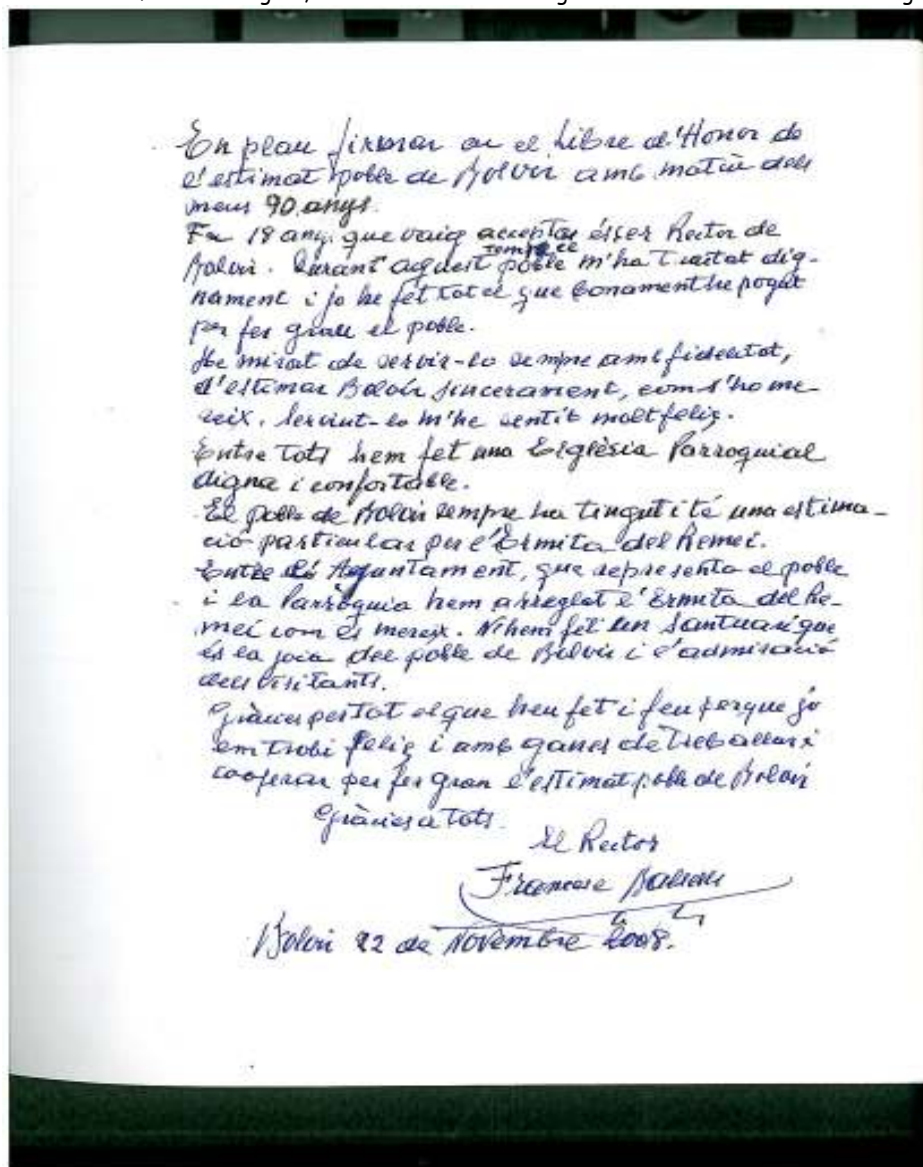 Em plau firmar en el Llibre d'Honor de
l'estimat poble de Bolvir amb motiu dels
meus 90 anys.
Fa 18 anys que vaig acceptar ésser Rector de
Bolvir. Durant aquest temps el poble m'ha tractat dig-
nament i jo he fet tot el que bonament he pogut
per fer gran el poble.
He mirat de servir-lo sempre amb fidelitat,
d'estimar Bolvir sincerament, com s'ho me-
reix. Servint-lo m'he sentit molt feliç.
Entre tots hem fet una Església Parroquial
digna i confortable.
El poble de Bolvir sempre ha tingut i té una estima-
ció particular per l'Ermita del Remei.
Entre l'Ajuntament, que representa el poble
i la Parròquia hem arreglat l'Ermita del Re-
mei com es mereix. N'hem fet un Santuari que
és la joia del poble de Bolvir i l'admiració
dels visitants.
Gràcies per tot el que heu fet i feu perque jo
em trobi feliç i amb ganes de treballar i
cooperar per fer gran l'estimat poble de Bolvir
Gràcies a tots.
El Rector
Francesc
Bolvir 22 de Novembre de 2008.